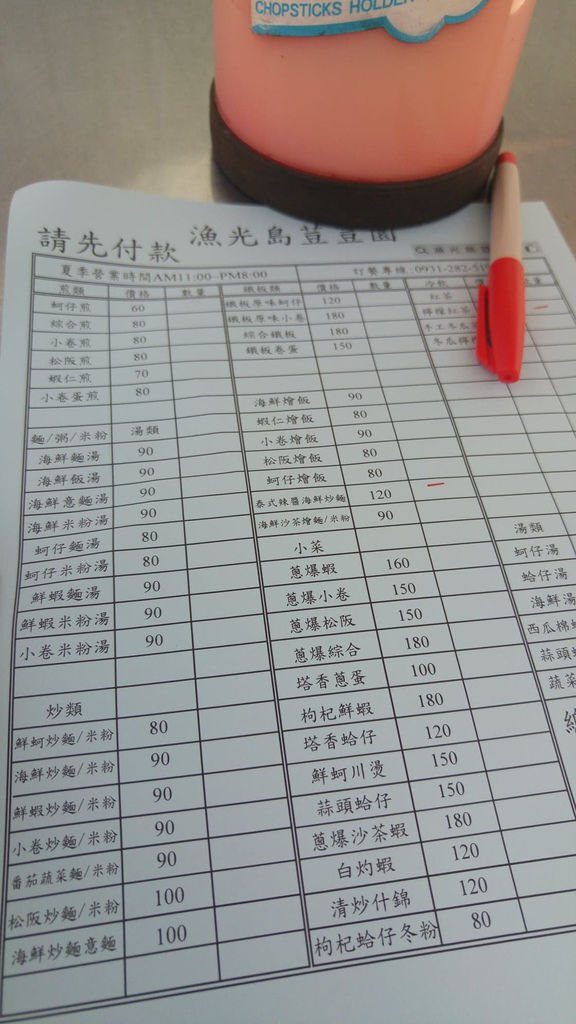 CHOPSTICKS HOLDER
請先付款 漁光島荳荳園
夏季營業時間AM11:00-PM8:00 訂餐專線:0931-282-51
煎類 價格 數量 鐵板類 價格 數量 冷飲
蚵仔煎 60 鐵板原味蚵仔 120 紅茶
綜合煎 80 鐵板原味小卷 180 檸檬紅茶
小卷煎 80 綜合鐵板 180 手工冬瓜
松阪煎 80 鐵板卷蛋 150 冬瓜檸檬
蝦仁煎 70
小卷蛋煎 80 海鮮燴飯 90
蝦仁燴飯 80
麵/粥/米粉 湯類 小卷燴飯 90
海鮮麵湯 90 松阪燴飯 80
海鮮飯湯 90 蚵仔燴飯 80
海鮮意麵湯 90 泰式辣醬海鮮炒麵 120
海鮮米粉湯 90 海鮮沙茶燴麵/米粉 90
蚵仔麵湯 80 小菜 湯類
蚵仔米粉湯 80 蔥爆蝦 160 蚵仔湯
鮮蝦麵湯 90 蔥爆小卷 150 蛤仔湯
鮮蝦米粉湯 90 蔥爆松阪 150 海鮮湯
小卷米粉湯 90 蔥爆綜合 180 西瓜棉
塔香蔥蛋 100 蒜頭
炒類 枸杞鮮蝦 180 蔬菜
鮮蚵炒麵/米粉 80 塔香蛤仔 120
海鮮炒麵/米粉 90 鮮蚵川燙 150
鮮蝦炒麵/米粉 90 蒜頭蛤仔 150
小卷炒麵/米粉 90 蔥爆沙茶蝦 180
番茄蔬菜麵/米粉 90 白灼蝦 120
松阪炒麵/米粉 100 清炒什錦 120
海鮮炒麵意麵 100 枸杞蛤仔冬粉 80